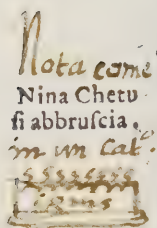 Nota come
Nina Chetu
ſi abbruſcia.
in un Cat